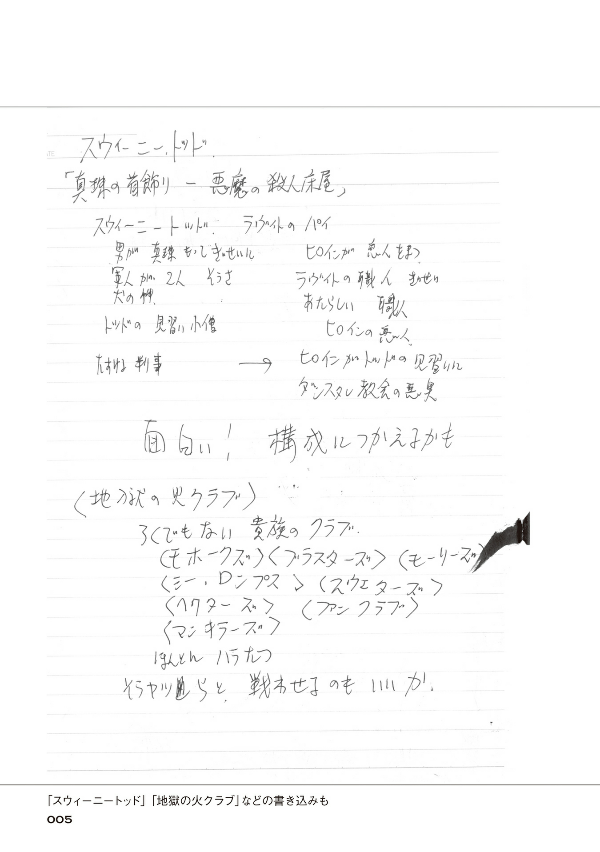 スウィーニー・トッド.
「真珠の首飾り ー 悪魔の殺人床屋」
スウィーニートッド. ラヴィトのパイ
男が 真珠 もってぎせいに ヒロインが 恋人をまつ
軍人が 2人 そうさ ラヴィトの職人
犬の件 あたらしい 職人
トッドの 見習い小僧 ヒロインの恋人
たすける 判事 → ヒロインがトッドの見習いに
ダンスタン教会の悪臭
面白い! 構成につかえるかも
〈地獄の火クラブ〉
ろくでもない 貴族のクラブ.
〈モホークズ〉〈ブラスターズ〉〈モーリーズ〉
〈ミー、ロンプス〉〈スウェターズ〉
〈ヘクターズ〉 〈ファンクラブ〉
〈マンキラーズ〉
ほんとに ハラたつ
そうヤツらと、戦わせるのも いいか.
「スウィーニートッド」「地獄の火クラブ」などの書き込みも
005